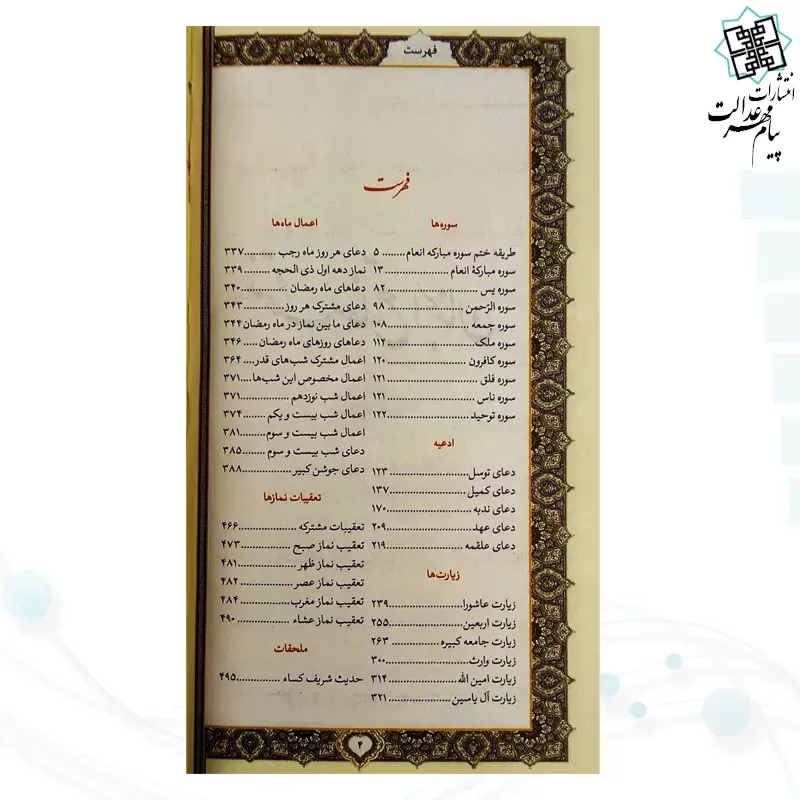 انتشارات
پیام مهر عدالت
فهرست
فهرست
سوره‌ها
طریقه ختم سوره مبارکه انعام........ ۵
سوره مبارکهٔ انعام.................... ۱۳
سوره یس............................ ۸۲
سوره الرّحمن........................ ۹۸
سوره جمعه......................... ۱۰۸
سوره ملک.......................... ۱۱۲
سوره کافرون....................... ۱۲۰
سوره فلق........................... ۱۲۱
سوره ناس.......................... ۱۲۱
سوره توحید........................ ۱۲۲
ادعیه
دعای توسل........................ ۱۲۳
دعای کمیل........................ ۱۳۷
دعای ندبه......................... ۱۷۰
دعای عهد......................... ۲۰۹
دعای علقمه....................... ۲۱۹
زیارت‌ها
زیارت عاشورا...................... ۲۳۹
زیارت اربعین...................... ۲۵۵
زیارت جامعه کبیره................ ۲۶۳
زیارت وارث........................ ۳۰۰
زیارت امین الله.................... ۳۱۴
زیارت آل یاسین.................... ۳۲۱
اعمال ماه‌ها
دعای هر روز ماه رجب............ ۳۳۷
نماز دهه اول ذی الحجه.......... ۳۳۹
دعاهای ماه رمضان................ ۳۴۰
دعای مشترک هر روز.............. ۳۴۳
دعای ما بین نماز در ماه رمضان ۳۴۴
دعاهای روزهای ماه رمضان..... ۳۴۶
اعمال مشترک شب‌های قدر.... ۳۶۴
اعمال مخصوص این شب‌ها.... ۳۷۱
اعمال شب نوزدهم................ ۳۷۱
اعمال شب بیست و یکم......... ۳۷۴
اعمال شب بیست و سوم........ ۳۸۱
دعای شب بیست و سوم......... ۳۸۵
دعای جوشن کبیر................. ۳۸۸
تعقیبات نمازها
تعقیبات مشترکه................... ۴۶۶
تعقیب نماز صبح................... ۴۷۳
تعقیب نماز ظهر.................... ۴۸۱
تعقیب نماز عصر................... ۴۸۲
تعقیب نماز مغرب.................. ۴۸۴
تعقیب نماز عشاء.................. ۴۹۰
ملحقات
حدیث شریف کساء............... ۴۹۵
۴